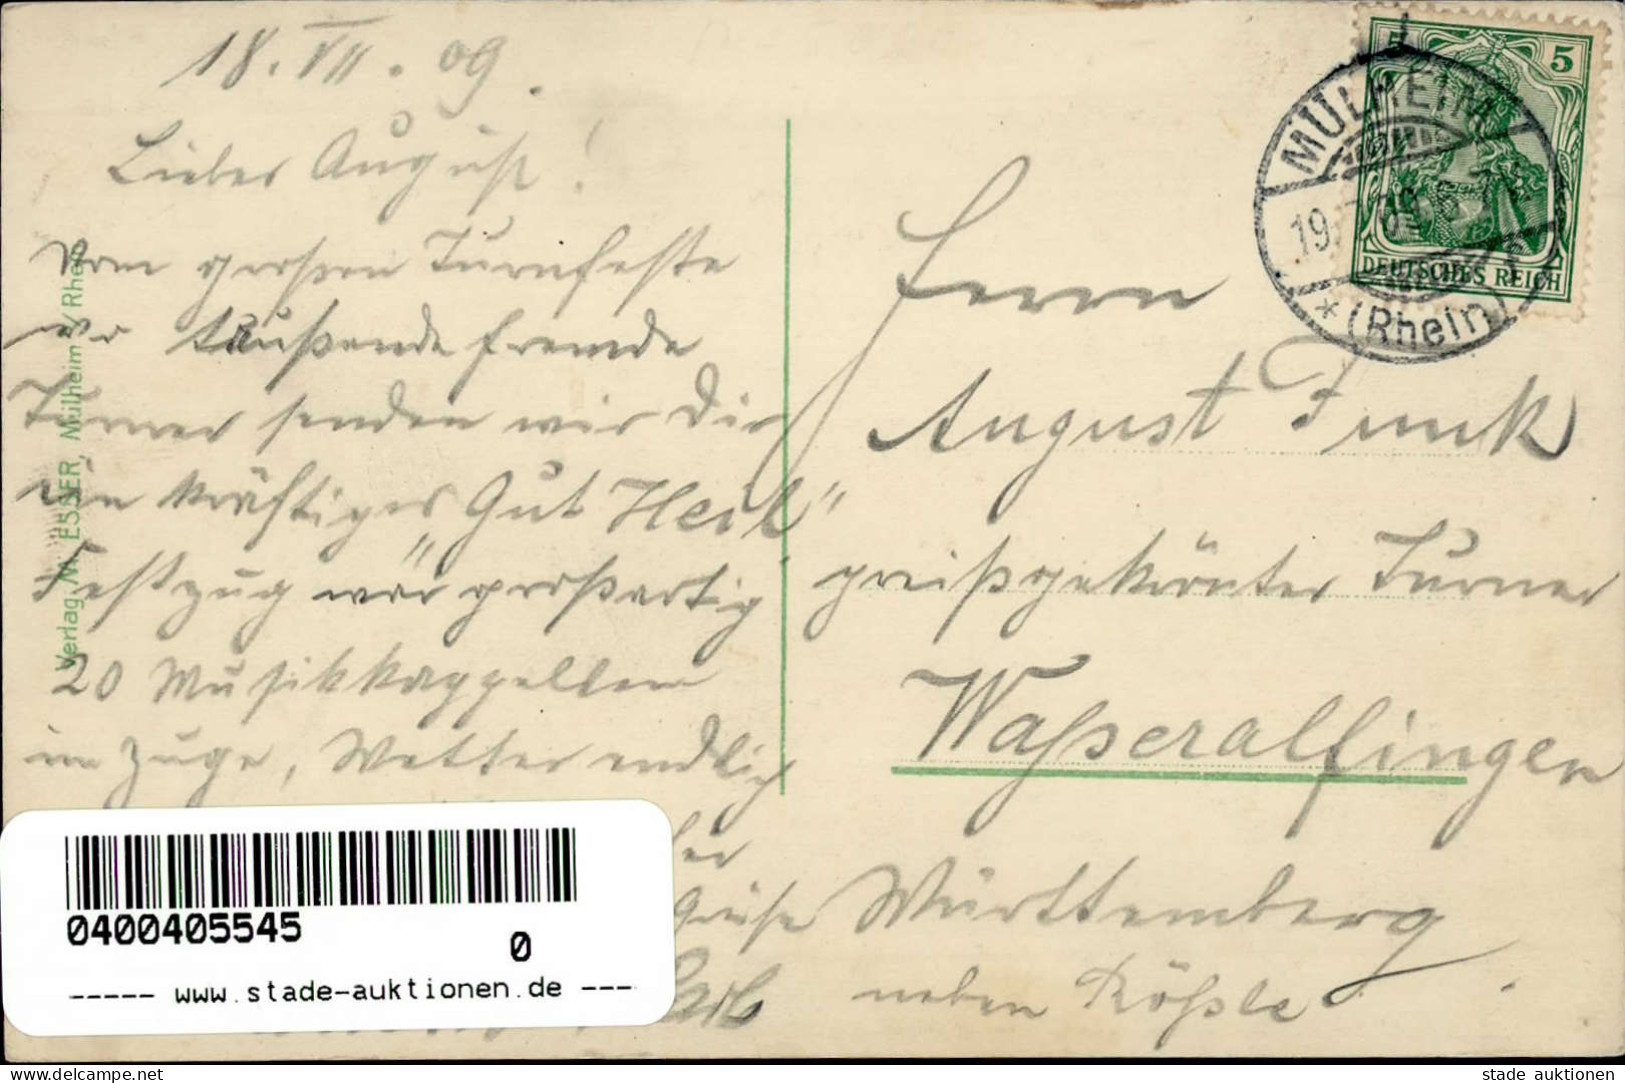 18. VII. 09.
Lieber August!
Vom großen Turnfeste
wo taußende fremde
Turner senden wir Dir
ein kräftiges „Gut Heil"
Festzug war großartig
20 Musikkappellen
im Zuge, Wetter endlich
Verlag N. ESSER, Mülheim / Rhein
5
5
DEUTSCHES REICH
MÜLHEIM
19.
* (Rhein)
Herrn
August Funk
preißgekrönter Turner
Wasseralfingen
Württemberg
neben Rößle.
0400405545
0
----- www.stade-auktionen.de ---
www.delcampe.net
stade auktionen